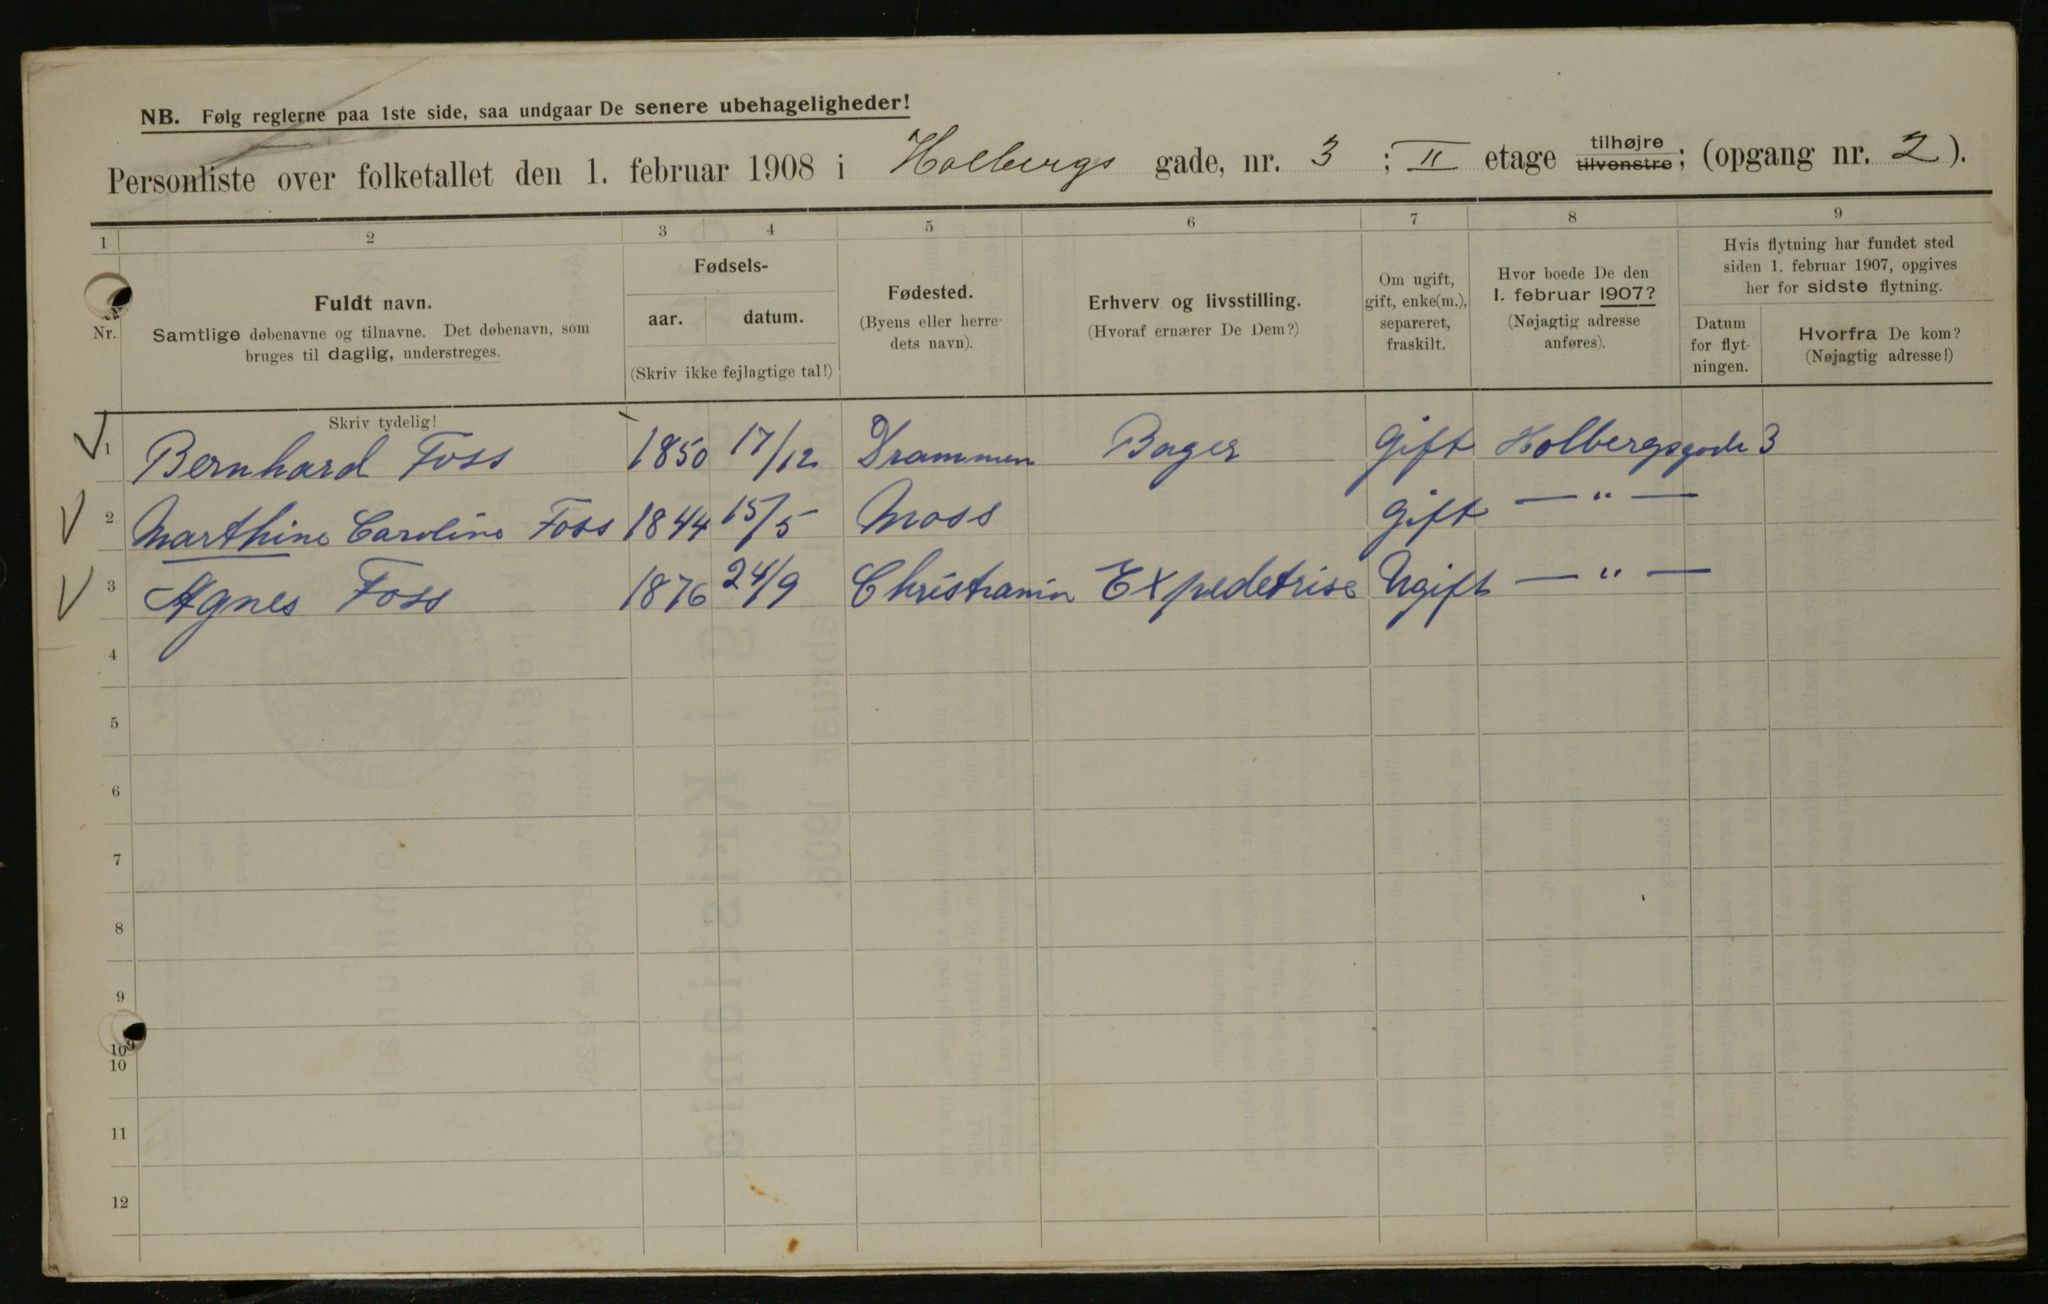 NB. Følg reglerne paa 1ste side, saa undgaar De senere ubehageligheder!
Personliste over folketallet den 1. februar 1908 i Holbergs gade, nr. 3 ; II etage tilhøjre tilvenstre; (opgang nr. 2 ).
1 2 3 4 5 6 7 8 9
Nr.
Fuldt navn.
Samtlige døbenavne og tilnavne. Det døbenavn, som
bruges til daglig, understreges.
Fødsels-
aar. datum.
(Skriv ikke fejlagtige tal!)
Fødested.
(Byens eller herre-
dets navn).
Erhverv og livsstilling.
(Hvoraf ernærer De Dem?)
Om ugift,
gift, enke(m.),
separeret,
fraskilt.
Hvor boede De den
1. februar 1907?
(Nøjagtig adresse
anføres).
Hvis flytning har fundet sted
siden 1. februar 1907, opgives
her for sidste flytning.
Datum
for flyt-
ningen.
Hvorfra De kom?
(Nøjagtig adresse!)
Skriv tydelig!
1 Bernhard Foss 1850 17/12 Drammen Bager Gift Holbergsgade 3
2 Marthine Caroline Foss 1844 15/5 Moss Gift — " —
3 Agnes Foss 1876 24/9 Christiania Expedetrise Ugift — " —
4
5
6
7
8
9
10
10
11
12